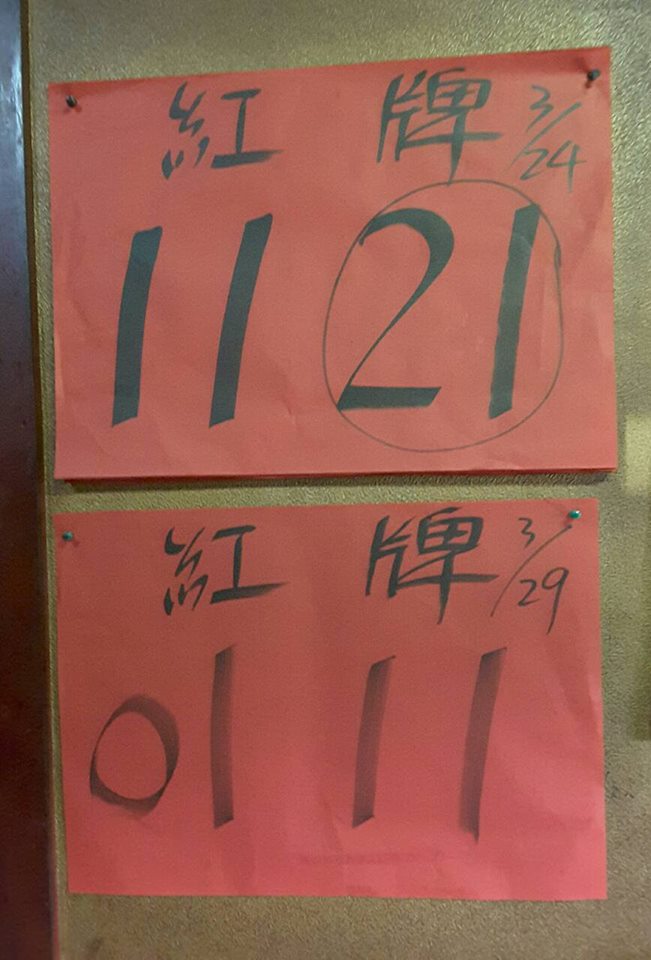 紅 牌 3/24
11 21
紅 牌 3/29
01 11